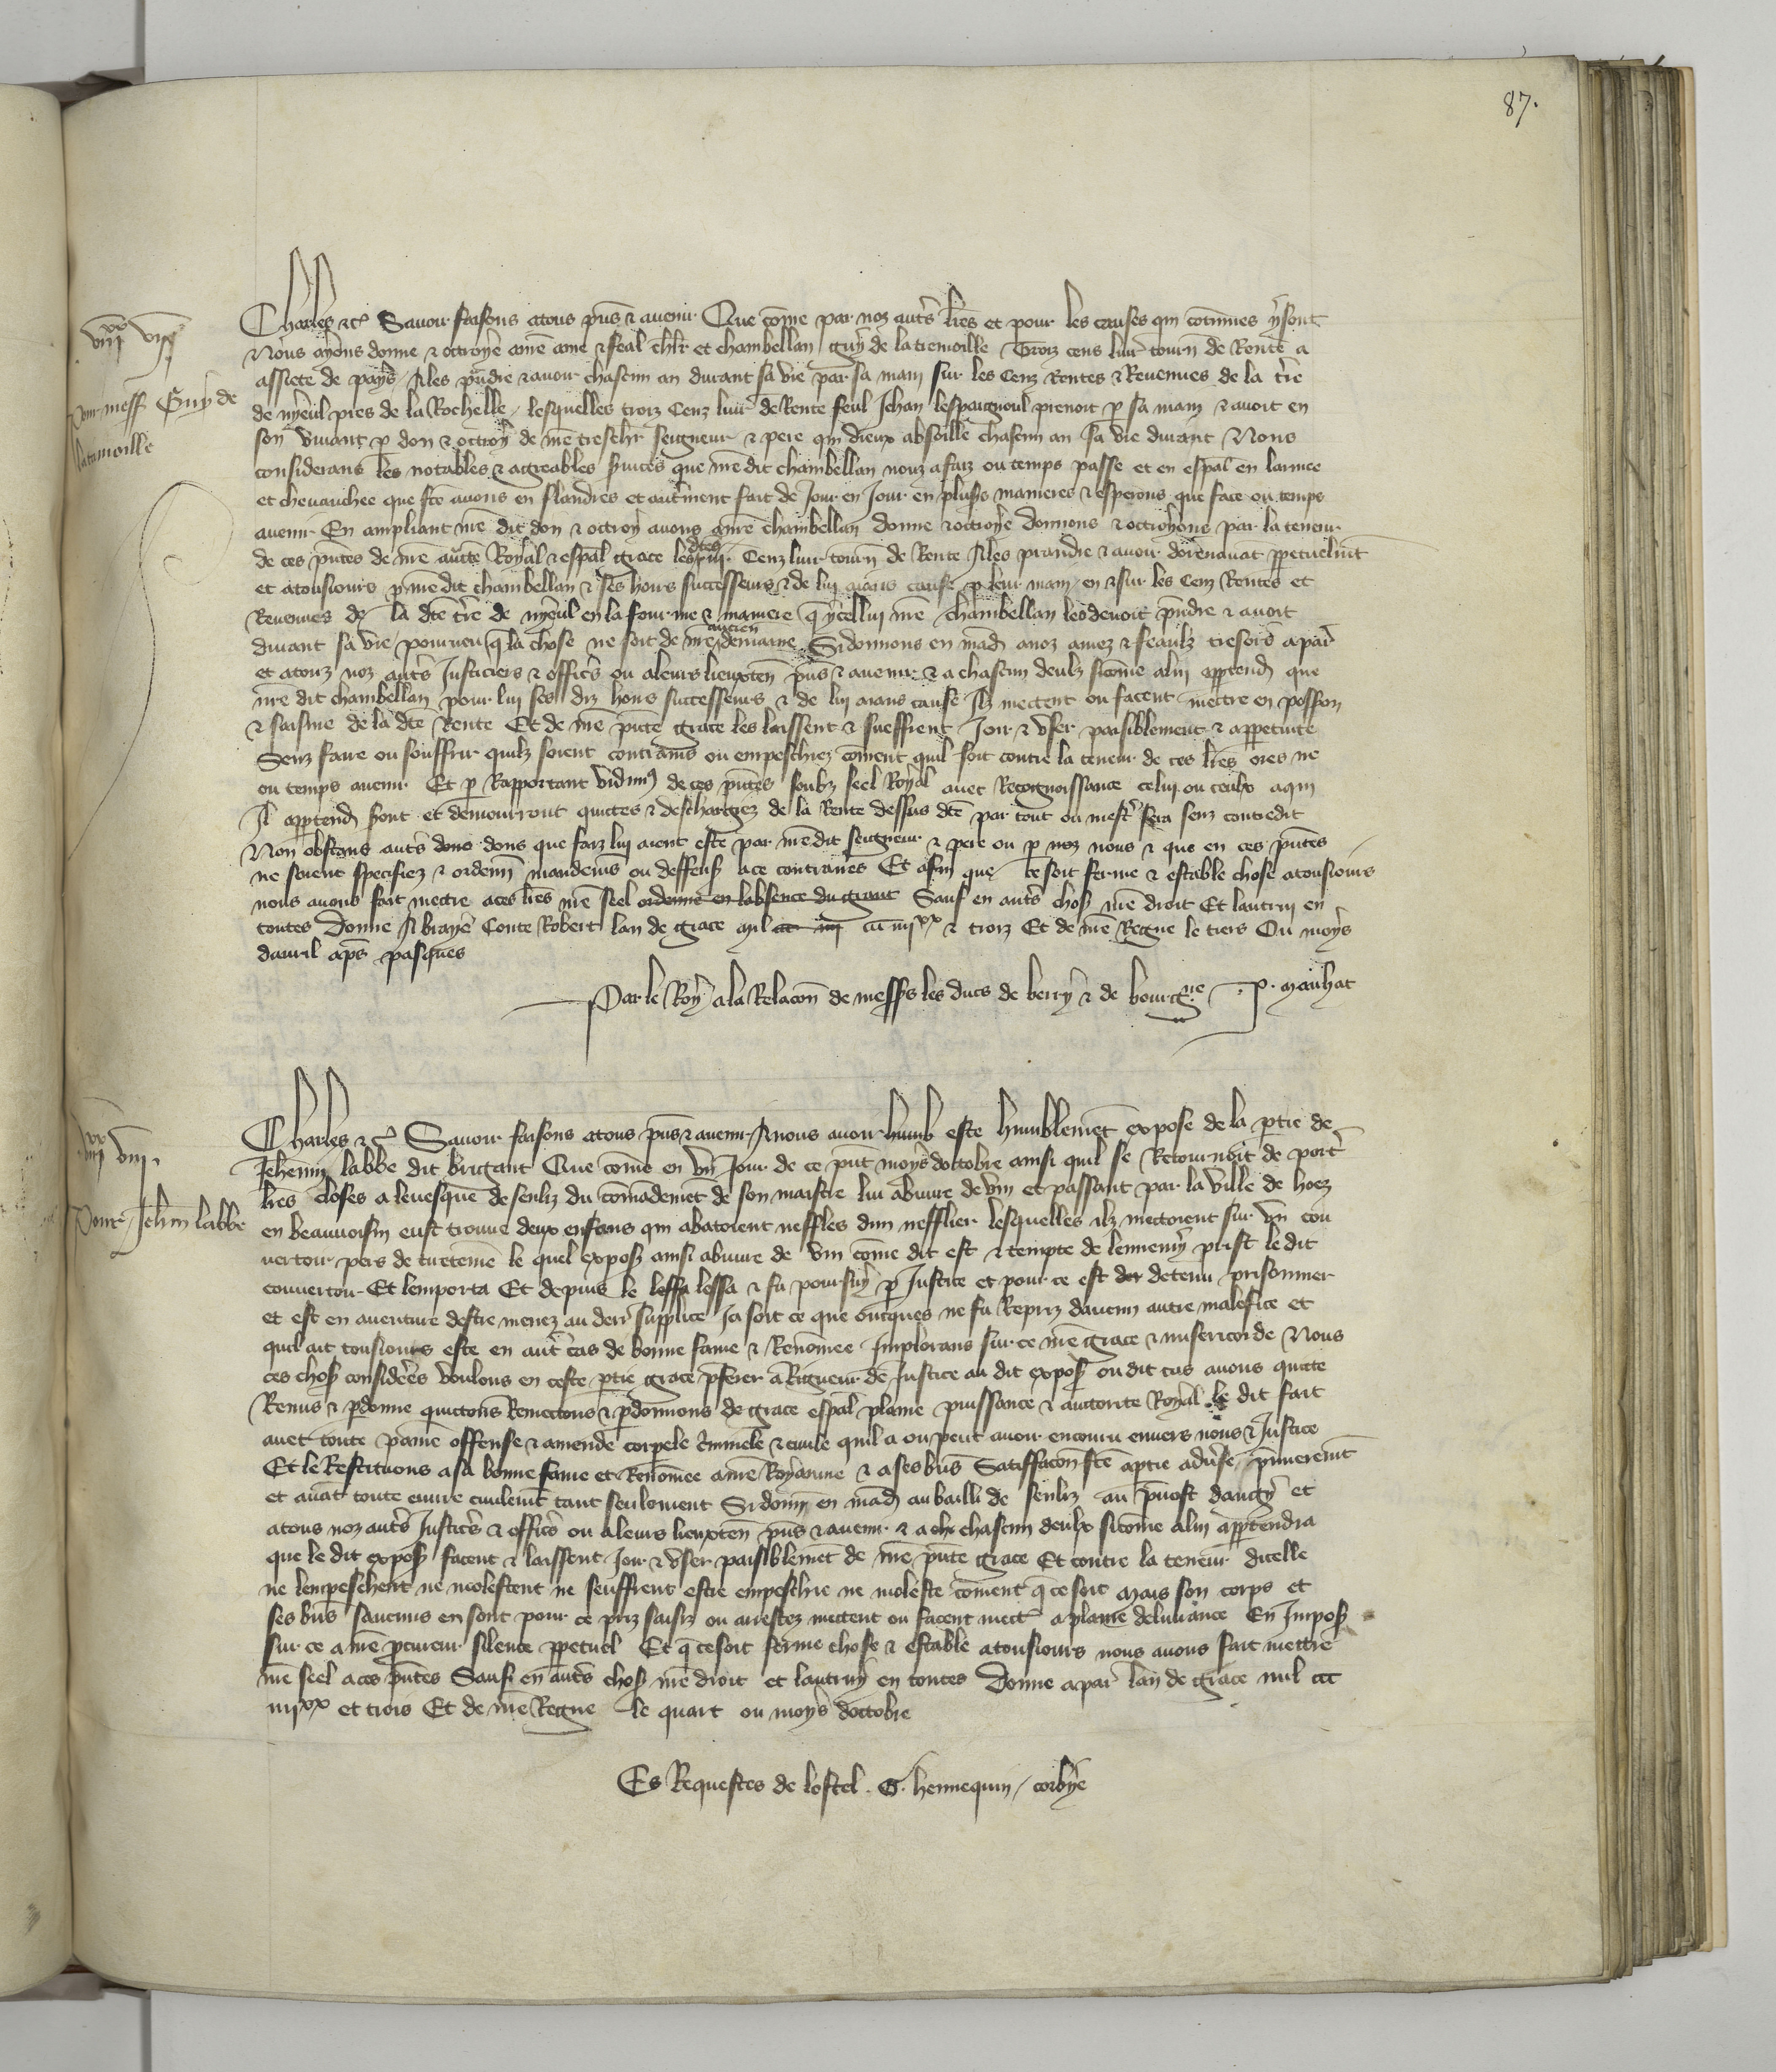 87.
Charles etc. Savoir faisons a tous pñs & avenir Que cõme par noz autrẽs lrẽs et pour les causes qui contenues y sont
Nous ayons donne & octroye a nrẽ ame & feal chlr̃ et chambellan guy de la tremoille Troiz cens livr̃ tourñ de Rente a
assiete de pays A les prẽdre & avoir chascun an durant sa vie par sa main sur les Cenz Rentes & Revenues de la tr̃re
de nyeul pres de la Rochelle / lesquelles troiz Cenz livr̃ de Rente feu Jehan lespaignoul prenoit p sa main & avoit en
son vivant p don & octroy de nrẽ treschr̃ seigneur & pere qui dieux absoille chascun an sa vie durant Nous
considerans les notables & agreables s̃vices que nrẽ dit chambellan nouz a faiz ou temps passe et en esp̃al en larmee
et chevauchee que fcẽ avons en flandres et autr̃ment fait de Jour en Jour en plusrs̃ manieres & esperons que face ou temps
avenir En ampliant nrẽ dit don & octroy avons a nrẽ chambellan donne & octroye donnons & octroyons par la teneur
de ces pñtes de nrẽ aucte Royal & esp̃al grace les dtẽs iii. Cenz livr̃ tourñ de Rente A les prandre & avoir dorenavãt p̃petuelmt̃
et a tousiours p nrẽ dit chambellan & ses hoirs successeurs & de lui aians cause p leur main en & sur les Cenz Rentes et
Revenues de la dtẽ tr̃re de nyeul en la fourme & maniere q̃ ycellui nrẽ chambellan les devoit prẽdre & avoit
durant sa vie / pourveu q̃ la chose ne soit de nrẽ ancien demaine Si donnons en mãd̃ a noz amez & feaulz tresors̃ a par̃
et a touz noz autrẽs Justiciers & officrs̃ ou a leurs lieuxteñ pñs & avenir & a chascun deulz sicõme a lui app̃tend̃ que
nrẽ dit chambellan pour lui ses diz hoirs successeurs & de lui aians cause Ilz mectent ou facent mectre en possion
& saisine de la dtẽ Rente Et de nrẽ pñte grace les laissent & sueffrent Joir & user paisiblement & a p̃petuite
Senz faire ou souffrir quilz soient contrains ou empeschiez cõment quil soit contre la teneur de ces lrẽs ores ne
ou temps avenir Et p Rapportant vidimus de ces pñtes soubz seel Royal avec Recognoissance celui ou ceulx a qui
Il app̃tend̃ s̃ont et demourront quictes & deschargez de la Rente dessus dtẽ par tout ou mestr̃ sera senz contredit
Non obstans autrẽs dons dons que faiz lui aient este par nrẽ dit seigneur & pere ou p noz nous & que en ces pñtes
ne soient specifiez & ordenñ mandemẽs ou deffenses a ce contraires Et afin que ce soit ferme & estable chose a tousiours
nous avons fait mectre a ces lrẽs nrẽ seel ordenne en labsence du grant Sauf en autrẽs chos̃ nrẽ droit Et lautrui en
toutes Donne A braye Conte Robert lan de grace mil cc iiii ccc iiiixx & troiz Et de nrẽ Regne le tiers Ou moys
davril aps̃ pasques
Par le Roy a la Relacoñ de messrs̃ les ducs de berry & de bourgne . p. mauhat
viiixx viii
Pour mess Guy de
la tremoille
Charles etc. Savoir faisons a tous pñs & avenir A nous avoir humb este humblemẽt expose de la ptie de
Jehenñ labbe dit brigant Que cõme en un Jour de ce pñt moys doctobre ainsi quil se Retournoit de port̃
lrẽs closes a levesque de senliz du cõmãdemẽt de son maistre lui abuvre de vin et passant par la ville de hoez
en beauvoisin eust trouve deux enfans qui abatoient neffles dun nefflier lesquelles ilz mettoient sur un cou
vertour pers de tiretenne le quel exposñ ainsi abuvre de vin cõme dit est & tempte de lennemy prist le dit
couvertour Et lemporta Et depuis le lessa lessa & fu poursuy p Justice et pour ce est der detenu prisonnier
et est en aventure destre menez au derr̃ supplice Ja soit ce que oncques ne fu Repriz daucun autre malefice et
quil ait tousiours este en autr̃ cas de bonne fame & Renõmee Implorans sur ce nrẽ grace & misericorde Nous
ces chos̃ considẽes voulons en ceste ptie grace p̃ferer a Rigueur de Justice au dit exposñ ou dit cas avons quitte
Remis & p̃donne quictons Remectons & p̃donnons de grace esp̃al plaine puissance & auctorite Royal le dit fait
avec toute painne offense & amende corp̃ele c̃minele & civile quil a ou peut avoir encouru envers nous & Justice
Et le Restituons a sa bonne fame et Renõmee a nrẽ Royaume & a ses biens Satisfacon fcẽ a ptie adṽse p̃mieremt̃
et avãt toute euvre civilemt̃ tant seulement Si donñ en mãd̃ au bailli de senliz au p̃vost dangy et
a tous noz autrẽs Justicrs̃ & officrs̃ ou a leurs lieuxteñ pñs & avenir & a ch chascun deulx sicõme a lui app̃tendra
que le dit exposñ facent & laissent Joir & user paisiblemẽt de nrẽ pñte grace Et contre la teneur dicelle
ne lempeschent ne molestent ne seuffrent estre empeschie ne moleste cõment q̃ ce soit mais son corps et
ses biens saucuns en sont pour ce priz saisiz ou arrestez mettent ou facent mectr̃ a plaine delivrance En Imposñ
sur ce a nrẽ p̃cureur silence p̃petuel Et q̃ ce soit ferme chose & estable a tousiours nous avons fait mettre
nrẽ seel a ces pñtes Sauf en autrẽs chos̃ nrẽ droit et lautruy en toutes Donne a par̃ lan de grace mil ccc
iiiixx et trois Et de nrẽ Regne le quart ou moys doctobre
Es Requestes de lostel . G. hennequin / corbye
viiixx viiii.
Pour Jehñ labbe